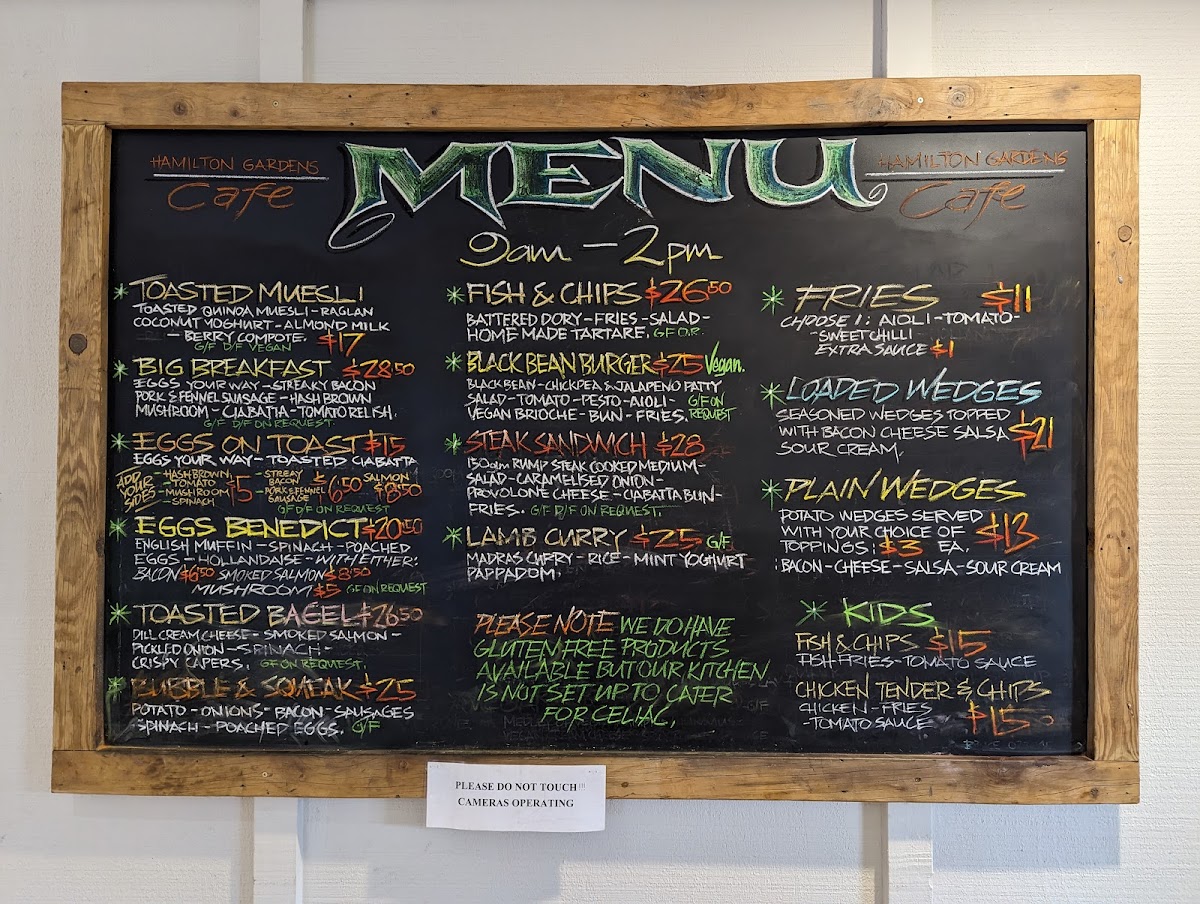 HAMILTON GARDENS
Cafe
MENU
HAMILTON GARDENS
Cafe
9am - 2pm
* TOASTED MUESLI
TOASTED QUINOA MUESLI - RAGLAN
COCONUT YOGHURT - ALMOND MILK
- BERRY COMPOTE. $17
G/F D/F VEGAN
* BIG BREAKFAST $28.50
EGGS YOUR WAY - STREAKY BACON
PORK & FENNEL SAUSAGE - HASH BROWN
MUSHROOM - CIABATTA - TOMATO RELISH.
G/F D/F ON REQUEST
* EGGS ON TOAST $15
EGGS YOUR WAY - TOASTED CIABATTA
ADD YOUR SIDES
- HASH BROWN
- TOMATO
- MUSHROOM
- SPINACH
$5
- STREAKY BACON
- PORK & FENNEL SAUSAGE
$6.50
SALMON
$8.50
G/F D/F ON REQUEST
* EGGS BENEDICT $20.50
ENGLISH MUFFIN - SPINACH - POACHED
EGGS - HOLLANDAISE - WITH EITHER:
BACON $6.50 SMOKED SALMON $8.50
MUSHROOM $5 G/F ON REQUEST
* TOASTED BAGEL $26.50
DILL CREAM CHEESE - SMOKED SALMON -
PICKLED ONION - SPINACH -
CRISPY CAPERS. G/F ON REQUEST.
* BUBBLE & SQUEAK $25
POTATO - ONIONS - BACON - SAUSAGES
- SPINACH - POACHED EGGS. G/F
* FISH & CHIPS $26.50
BATTERED DORY - FRIES - SALAD -
HOME MADE TARTARE. G F O.R.
* BLACK BEAN BURGER $25 Vegan.
BLACK BEAN - CHICKPEA & JALAPENO PATTY
SALAD - TOMATO - PESTO - AIOLI - G/F ON
VEGAN BRIOCHE - BUN - FRIES. REQUEST
* STEAK SANDWICH $28
150gm RUMP STEAK COOKED MEDIUM -
SALAD - CARAMELISED ONION -
PROVOLONE CHEESE - CIABATTA BUN -
FRIES. G/F D/F ON REQUEST.
* LAMB CURRY $25 G/F
MADRAS CURRY - RICE - MINT YOGHURT
PAPPADOM.
PLEASE NOTE WE DO HAVE
GLUTEN FREE PRODUCTS
AVAILABLE BUT OUR KITCHEN
IS NOT SET UP TO CATER
FOR CELIAC.
* FRIES $11
CHOOSE 1: AIOLI - TOMATO -
- SWEET CHILLI
EXTRA SAUCE $1
* LOADED WEDGES
SEASONED WEDGES TOPPED
WITH BACON CHEESE SALSA $21
SOUR CREAM.
* PLAIN WEDGES
POTATO WEDGES SERVED
WITH YOUR CHOICE OF $13
TOPPINGS: $3 EA.
: BACON - CHEESE - SALSA - SOUR CREAM
* KIDS
FISH & CHIPS $15
FISH - FRIES - TOMATO SAUCE
CHICKEN TENDER & CHIPS
CHICKEN - FRIES
- TOMATO SAUCE $15
PLEASE DO NOT TOUCH!!!
CAMERAS OPERATING